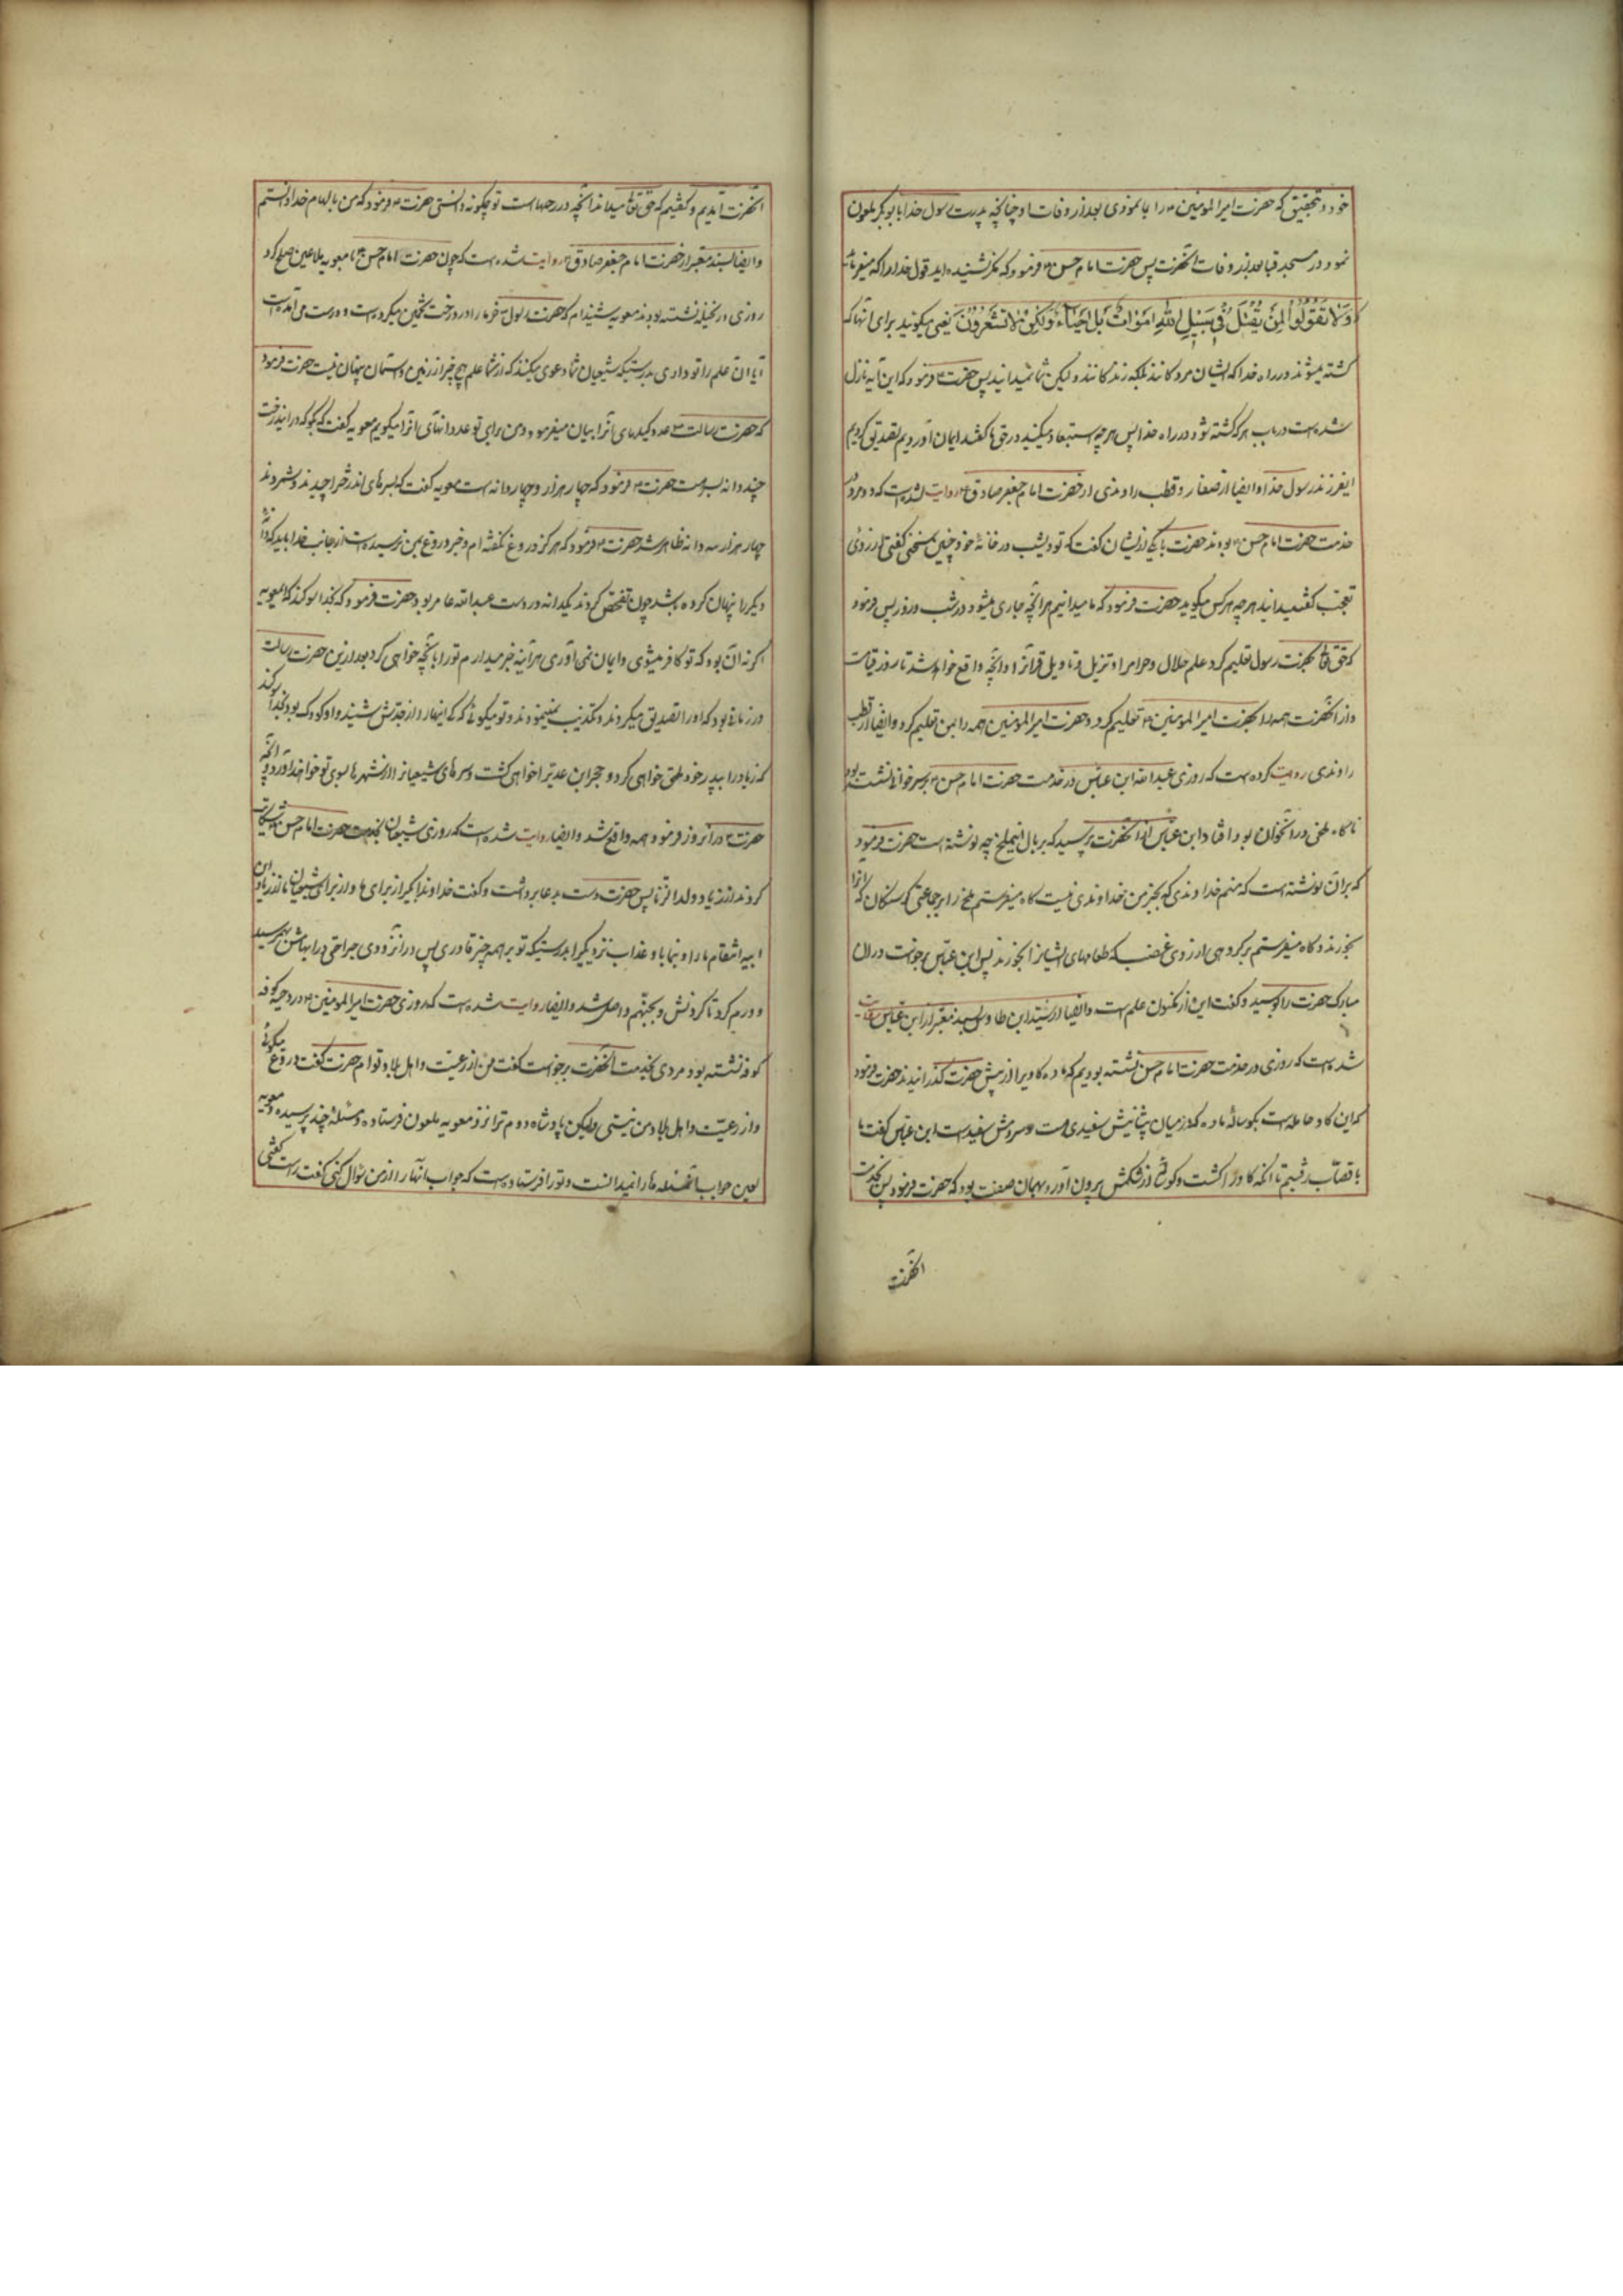 خود و تحقیق که حضرت امیر المومنین ع را بما نمودی بعد از وفات او چنانچه پدرت رسول خدا بابوبکر ملعون
نمود در مسجد قبا بعد از وفات آنحضرت پس حضرت امام حسن ع فرمود که مگر نشنیده اید قول خدا را که میفرماید
وَلَا تَقُولُوا لِمَنْ يُقْتَلُ فِي سَبِيلِ اللهِ اَمْوَاتٌ بَلْ اَحْيَاءٌ وَلَكِنْ لَا تَشْعُرُونَ یعنی میکوئید برای آنها که
کشته میشوند در راه خدا که ایشان مردکانند بلکه زندکانند و لیکن شما نمیدانید پس حضرت ع فرمود که این آیه نازل
شده است در باب هر که کشته شود در راه خدا پس هر چه استبعاد میکنید در حق ما کفتند ایمان آوردیم تصدیق کردیم
ایفرزند رسول خدا و ایضا از صفار و قطب راوندی از حضرت امام جعفر صادق ع روایت شده است که دو مرد در
خدمت حضرت امام حسن ع بودند حضرت با یکی از ایشان کفت که تو دیشب در خانهٔ خود چنین سخنی کفتی آنمرد از روی
تعجب کفت میداند هر چه هر کس میکوید حضرت فرمود که ما میدانیم هر آنچه جاری میشود در شب و روز پس فرمود
که حق تعالی بحضرت رسول تعلیم کرد علم حلال و حرام را و تنزیل و تاویل قرآنرا و آنچه واقع خواهد شد تا روز قیامت
و از آنحضرت همه را بحضرت امیر المومنین ع تعلیم کرد و حضرت امیر المومنین همه را بمن تعلیم کرد و ایضا از قطب
راوندی روایت کرده است که روزی عبدالله ابن عباس در خدمت حضرت امام حسن ع بر سر خوانی نشسته بود
ناکاه ملخی در آنخوان بود افتاد ابن عباس از آنحضرت پرسید که بر بال اینملخ چه نوشته است حضرت فرمود
که بر آن نوشته است که منم خداوندی که بجز من خداوندی نیست کاه میفرستم ملخ را بر جماعتی کرسنکان که آنرا
بخورند و کاه میفرستم بر کروهی از روی غضب که طعامهای ایشانرا بخورند پس ابن عباس برخواست و در آن
مبارک حضرت را بوسید و کفت این از مکنون علم است و ایضا از سید ابن طاوس بسند معتبر از ابن عباس روایت
شده است که روزی در خدمت حضرت امام حسن نشسته بودیم که ماده کاویرا از پیش حضرت کذرانیدند حضرت فرمود
که این کاو حامله است بکوسالهٔ ماده که در میان پیشانیش سفیدی هست و سر دمش سفید است ابن عباس کفت ما
با قصاب رفتیم تا آنکه کاو را کشت و کوساله از شکمش بیرون آورد بهمان صفت بود که حضرت فرمود پس بخدمت
آنحضرت
آنحضرت آمدیم و کفتیم که حق تعالی میداند آنچه در رحمهاست تو چکونه دانستی حضرت ع فرمود که من بالهام خدا دانستم
و ایضا بسند معتبر از حضرت امام جعفر صادق ع روایت شده است که چون حضرت امام حسن ع با معویه ملاعین صلح کرد
روزی در نخیله نشسته بودند معویه شنیده ام که حضرت رسول ص خرما را در درخت تخمین میکرده است و درست می آمده است
آیا آن علم را تو داری بدرستیکه شیعیان شما دعوی میکنند که از شما علم هیچ چیز از زمین و آسمان پنهان نیست حضرت فرمود
که حضرت رسالت ص عدد کیلهای آنرا بیان میفرمود و من برای تو عدد دانهای آنرا میکویم معویه کفت که بکو که در این درخت
چند دانه بسر است حضرت ع فرمود که چهار هزار و چهار دانه است معویه کفت که بسرهای آندرخترا چیدند و شمردند
چهار هزار سه دانه ظاهر شد حضرت ع فرمود که هرکز دروغ نکفته ام و خبر دروغ بمن نرسیده است از جانب خدا باید که دانه
دیکر را پنهان کرده باشد چون تفحص کردند یکدانه در دست عبدالله عامر بود حضرت فرمود که بخدا سوکند که ای معویه
اکر نه آن بود که تو کافر میشوی و ایمان نمی آوری هر آینه خبر میدادم تو را بآنچه خواهی کرد بعد از این حضرت رسالت
در زمانی بود که او را تصدیق میکردند و تکذیب نمینمودند و تو میکوئی که کی اینها را از جدش شنید و او کودک بود بخدا سوکند
که زیاد را بپدر خود ملحق خواهی کرد و حجر ابن عدیرا خواهی کشت و سرهای شیعیانرا از شهرها بسوی تو خواهند آورد و آنچه
حضرت ع در آنروز فرمود همه واقع شد و ایضا روایت شده است که روزی شیعیان بخدمت حضرت امام حسن ع شکایت
کردند از زیاد ولد الزنا پس حضرت دست بدعا برداشت و کفت خداوندا بکیر از برای ما و از برای شیعیان ما از زیاد ابن
ابیه انتقام ما را و بنما باو عذاب نزدیکیرا بدرستیکه تو بر همه چیز قادری پس در آنزودی جراحتی در ابهامش بهم رسید
و ورم کرد تا کردنش و بجهنم واصل شد و ایضا روایت شده است که روزی حضرت امیر المومنین ع در رحبه کوفه
نشسته بود مردی بخدمت آنحضرت برخواست کفت من از رعیت و اهل بلاد توام حضرت کفت دروغ میکوئی
و از رعیت و اهل بلاد من نیستی ولیکن پادشاه روم ترا نزد معویه ملعون فرستاده و مسئلهٔ چند پرسیده و معویه
لعین جواب آنمسئله ها را نمیدانست و تو را فرستاده است که جواب آنها را از من سؤال کنی کفت راست کفتی